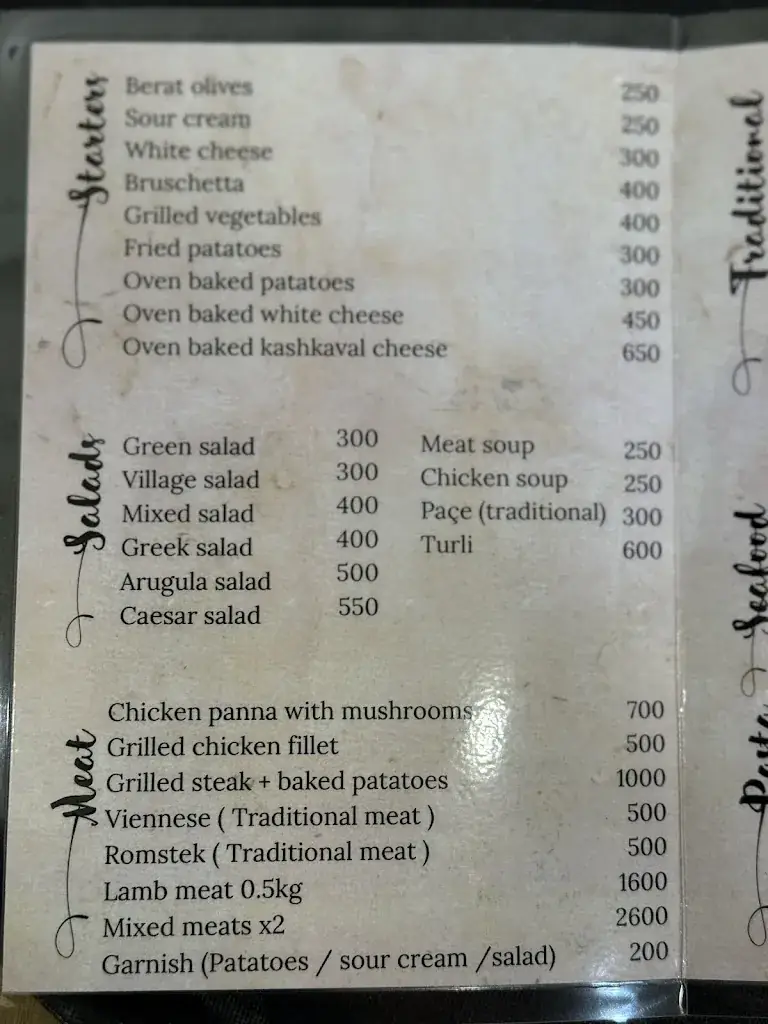 Starters
Berat olives 250
Sour cream 250
White cheese 300
Bruschetta 400
Grilled vegetables 400
Fried patatoes 300
Oven baked patatoes 300
Oven baked white cheese 450
Oven baked kashkaval cheese 650
Salads
Green salad 300
Village salad 300
Mixed salad 400
Greek salad 400
Arugula salad 500
Caesar salad 550
Meat soup 250
Chicken soup 250
Paçe (traditional) 300
Turli 600
Meat
Chicken panna with mushrooms 700
Grilled chicken fillet 500
Grilled steak + baked patatoes 1000
Viennese ( Traditional meat ) 500
Romstek ( Traditional meat ) 500
Lamb meat 0.5kg 1600
Mixed meats x2 2600
Garnish (Patatoes / sour cream /salad) 200
Traditional
Seafood
Pasta